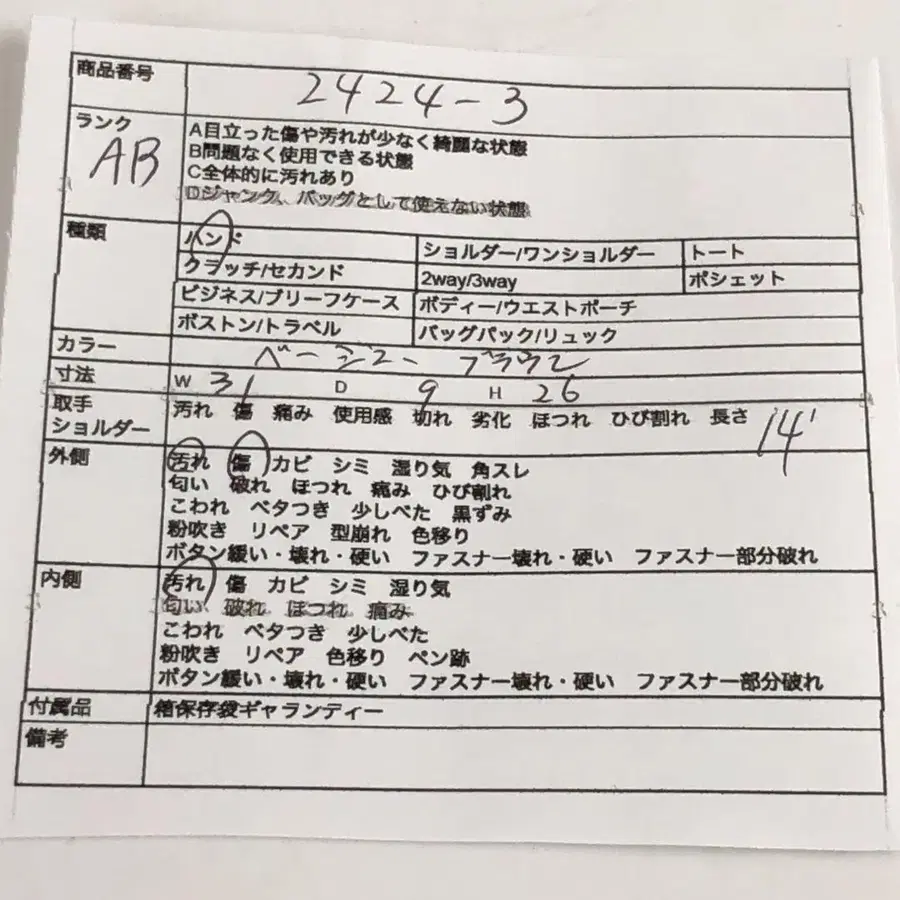 商品番号 2424-3
ランク AB
A目立った傷や汚れが少なく綺麗な状態
B問題なく使用できる状態
C全体的に汚れあり
Dジャンク、バッグとして使えない状態
種類 ハンド ショルダー/ワンショルダー トート
クラッチ/セカンド 2way/3way ポシェット
ビジネス/ブリーフケース ボディー/ウエストポーチ
ボストン/トラベル バッグパック/リュック
カラー ベージュー ブラウン
寸法 W 31 D 9 H 26
取手 汚れ 傷 痛み 使用感 切れ 劣化 ほつれ ひび割れ 長さ 14
ショルダー
外側 汚れ 傷 カビ シミ 湿り気 角スレ
匂い 破れ ほつれ 痛み ひび割れ
こわれ ベタつき 少しべた 黒ずみ
粉吹き リペア 型崩れ 色移り
ボタン緩い・壊れ・硬い ファスナー壊れ・硬い ファスナー部分破れ
内側 汚れ 傷 カビ シミ 湿り気
匂い 破れ ほつれ 痛み
こわれ ベタつき 少しべた
粉吹き リペア 色移り ペン跡
ボタン緩い・壊れ・硬い ファスナー壊れ・硬い ファスナー部分破れ
付属品 箱保存袋ギャランティー
備考